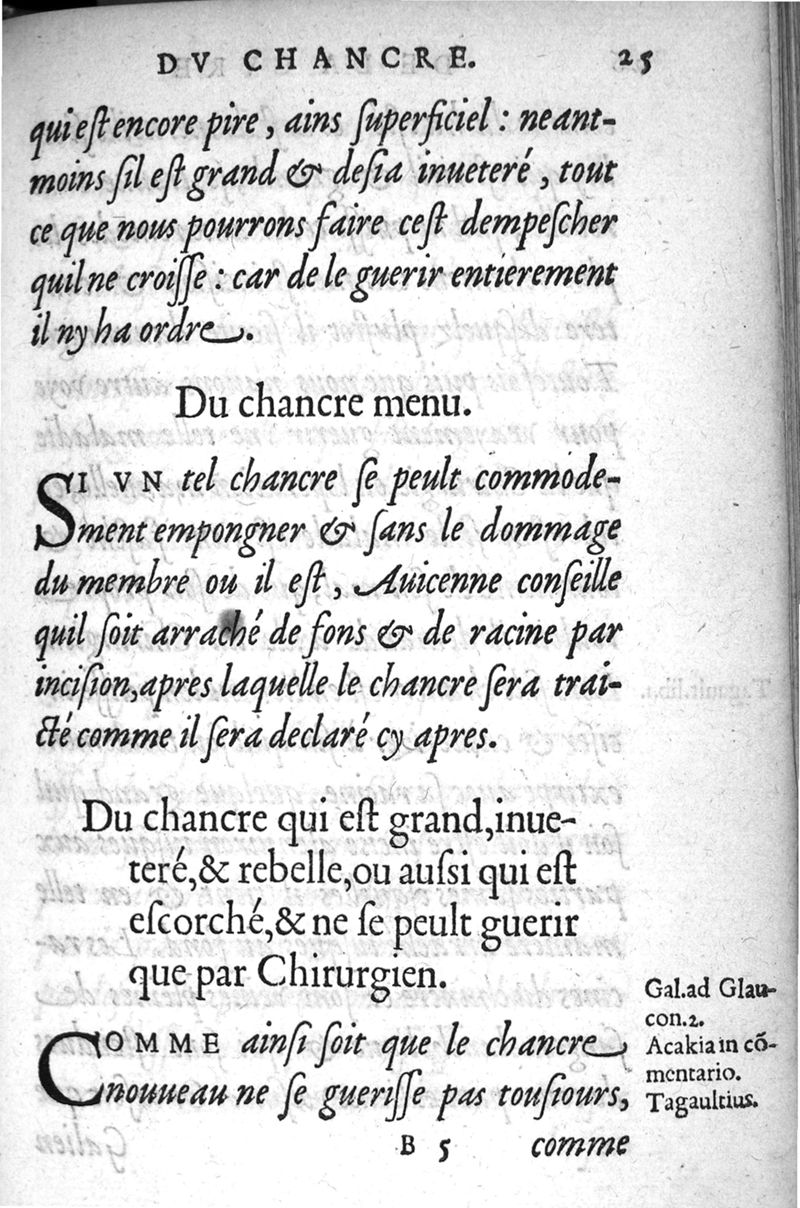 DV CHANCRE. 25
qui eſt encore pire, ains ſuperficiel : neant-
moins ſil eſt grand & deſia inueteré, tout
ce que nous pourrons faire ceſt dempeſcher
quil ne croiſſe : car de le guerir entierement
il ny ha ordre.
Du chancre menu.
SI VN tel chancre ſe peult commode-
ment empongner & ſans le dommage
du membre ou il eſt, Auicenne conſeille
quil ſoit arraché de fons & de racine par
inciſion, apres laquelle le chancre ſera trai-
cté comme il ſera declaré cy apres.
Du chancre qui eſt grand, inue-
teré, & rebelle, ou auſsi qui eſt
eſcorché, & ne ſe peult guerir
que par Chirurgien.
COMME ainſi ſoit que le chancre
nouueau ne ſe gueriſſe pas touſiours,
Gal. ad Glau-
con. 2.
Acakia in cõ-
mentario.
Tagaultius.
B 5 comme